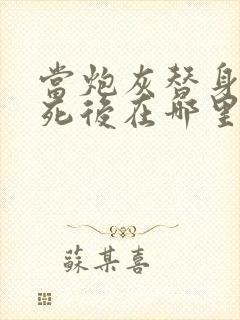 當炮灰替身
死後在哪里
蘇某喜